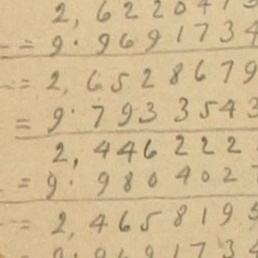 2, 6220473
== 9. 9691734
== 2, 6528679
= 9. 7933543
2, 446222
= 9. 980402
== 2, 465819